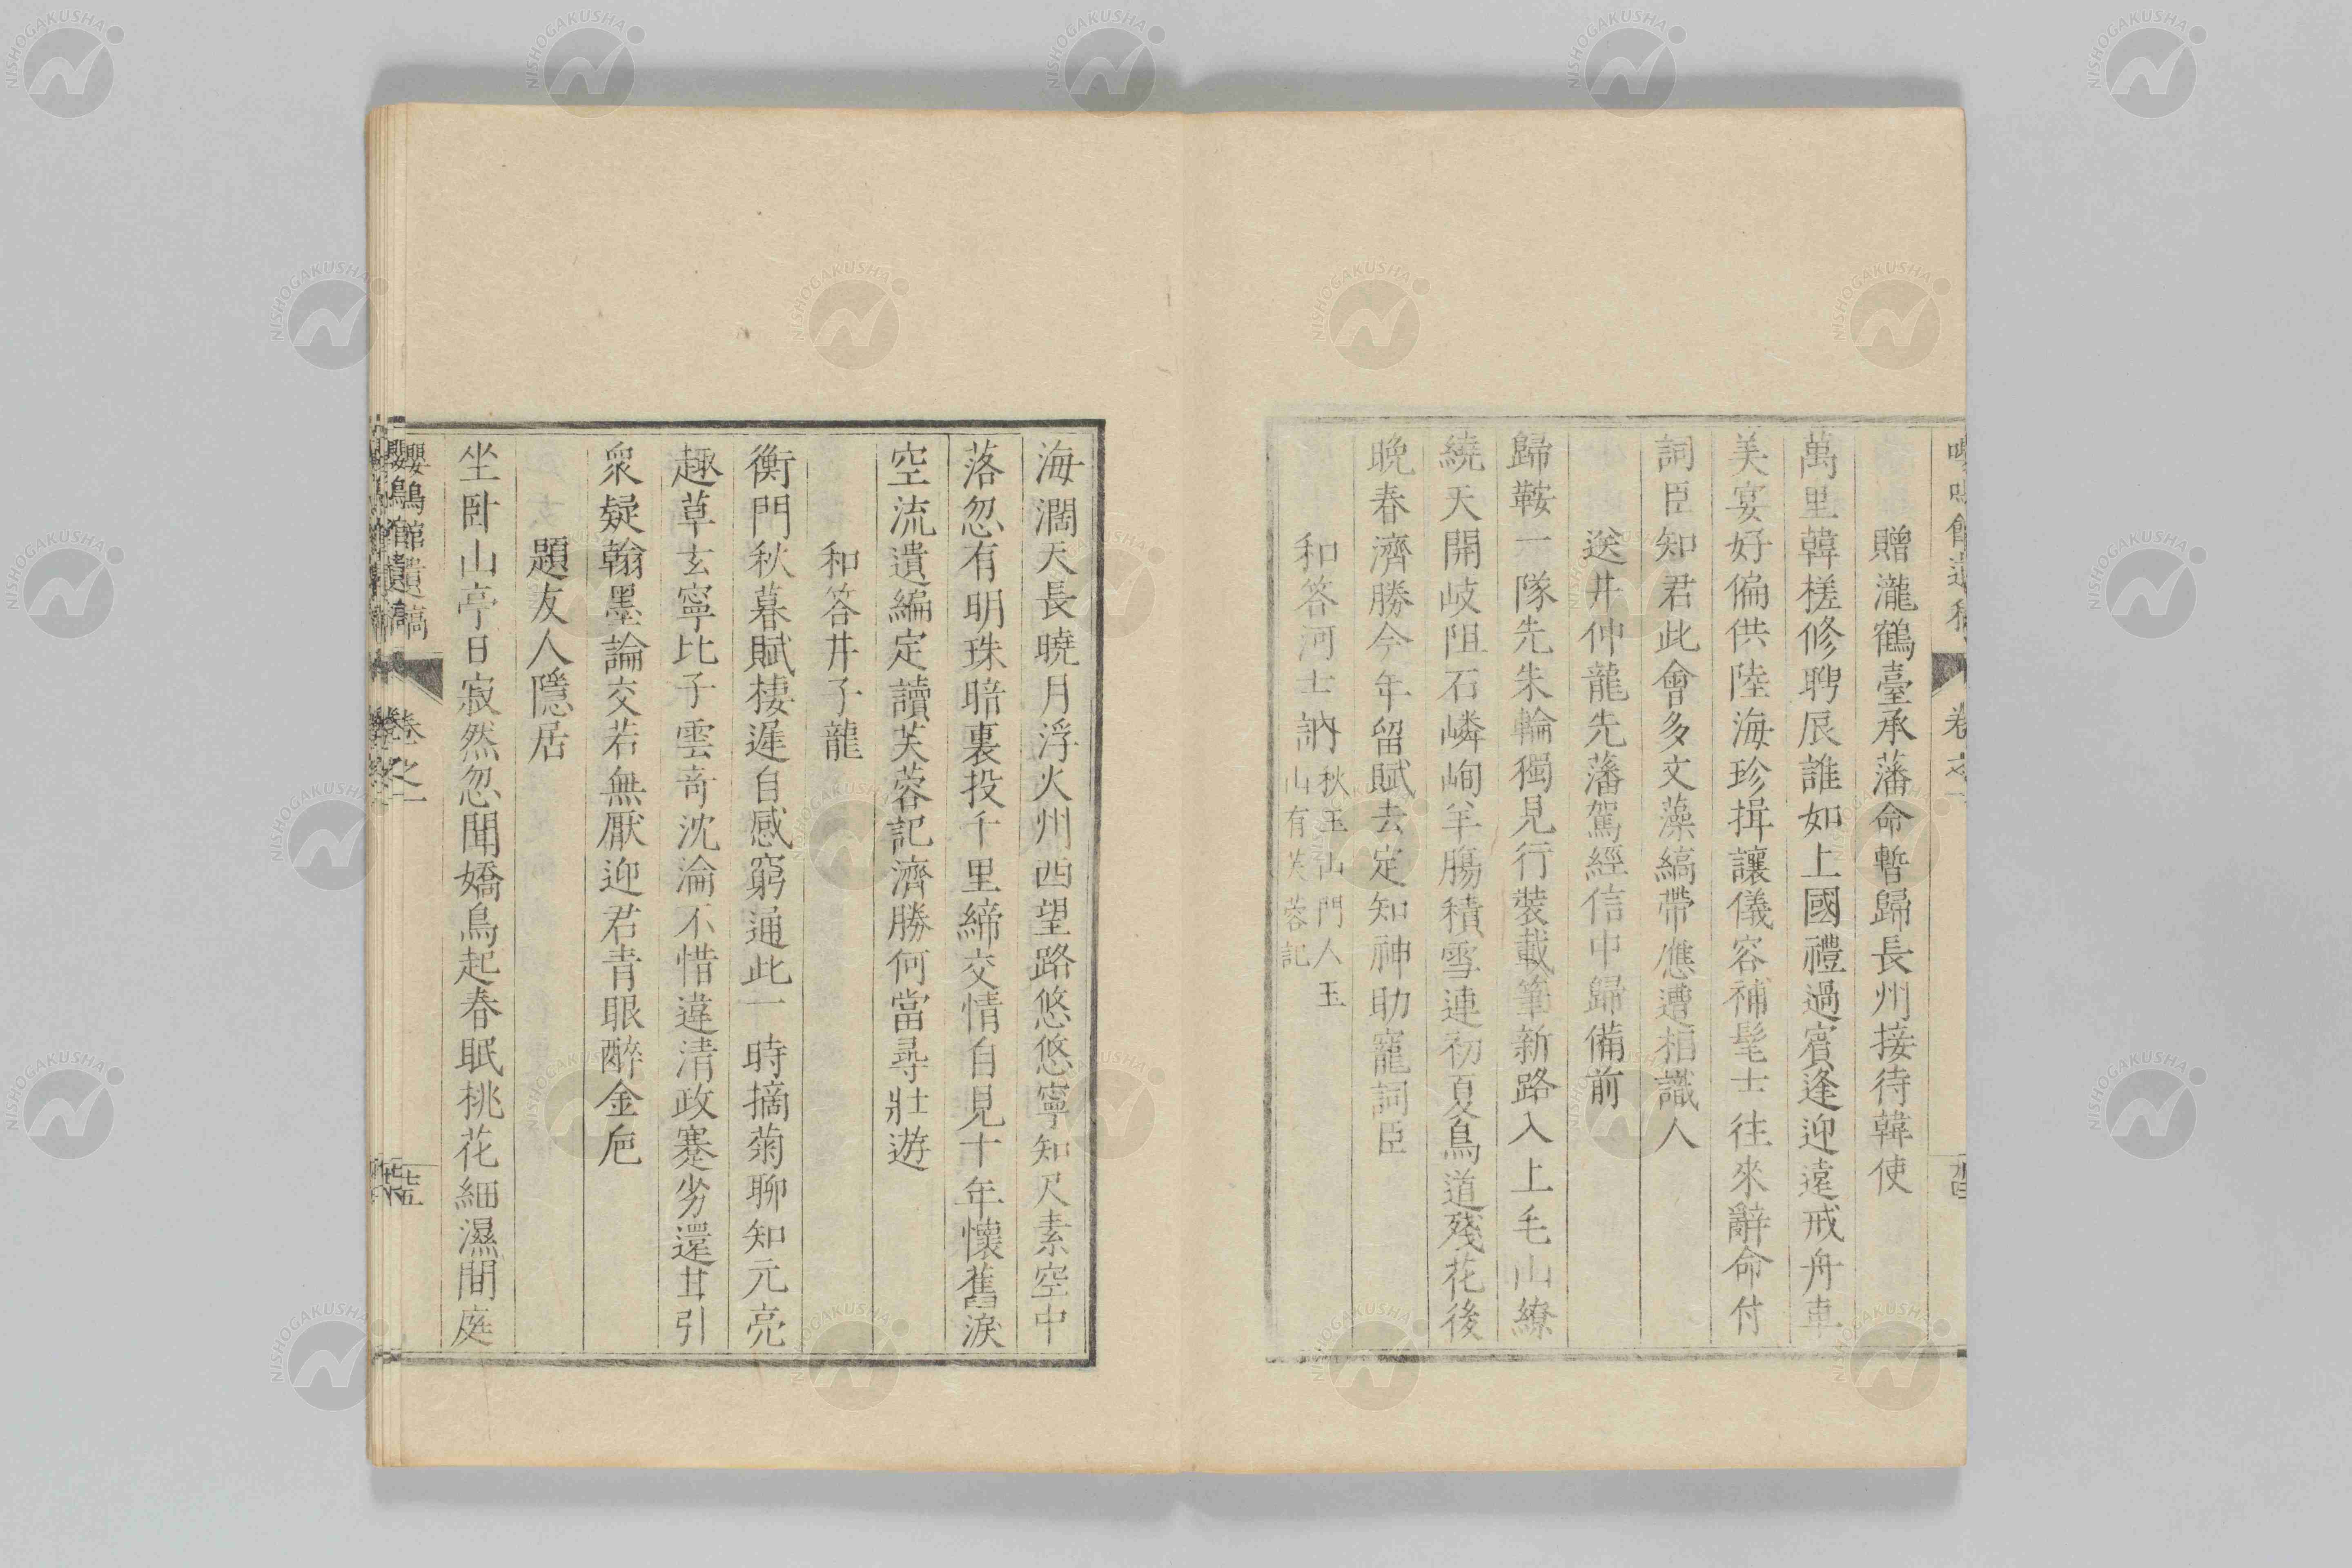 贈瀧鶴臺承藩命暫歸長州接待韓使
萬里韓槎修聘辰誰如上國禮過賓逢迎遠戒舟車
美宴好偏供陸海珍揖讓儀容補髦士往來辭命付
詞臣知君此會多文藻縞帶應遭相識人
送井仲龍先藩駕經信中歸備前
歸鞍一隊先朱輪獨見行裝載筆新路入上毛山繚
繞天開岐阻石嶙峋羊腸積雪連初夏鳥道殘花後
晚春濟勝今年留賦去定知神助寵詞臣
和答河士訥
秋玉山門人玉
山有芙蓉記
海濶天長曉月浮火州西望路悠悠寧知尺素空中
落忽有明珠暗裏投千里締交情自見十年懷舊淚
空流遺編定讀芙蓉記濟勝何當尋壯遊
和答井子龍
衡門秋暮賦棲遲自感窮通此一時摘菊聊知元亮
趣草玄寧比子雲奇沈淪不惜違清政蹇劣還甘引
衆疑翰墨論交若無厭迎君青眼醉金巵
題友人隱居
坐臥山亭日寂然忽聞嬌鳥起春眠桃花細濕間庭
嚶鳴館遺稿
卷之一
七五
NISHOGAKUSHA